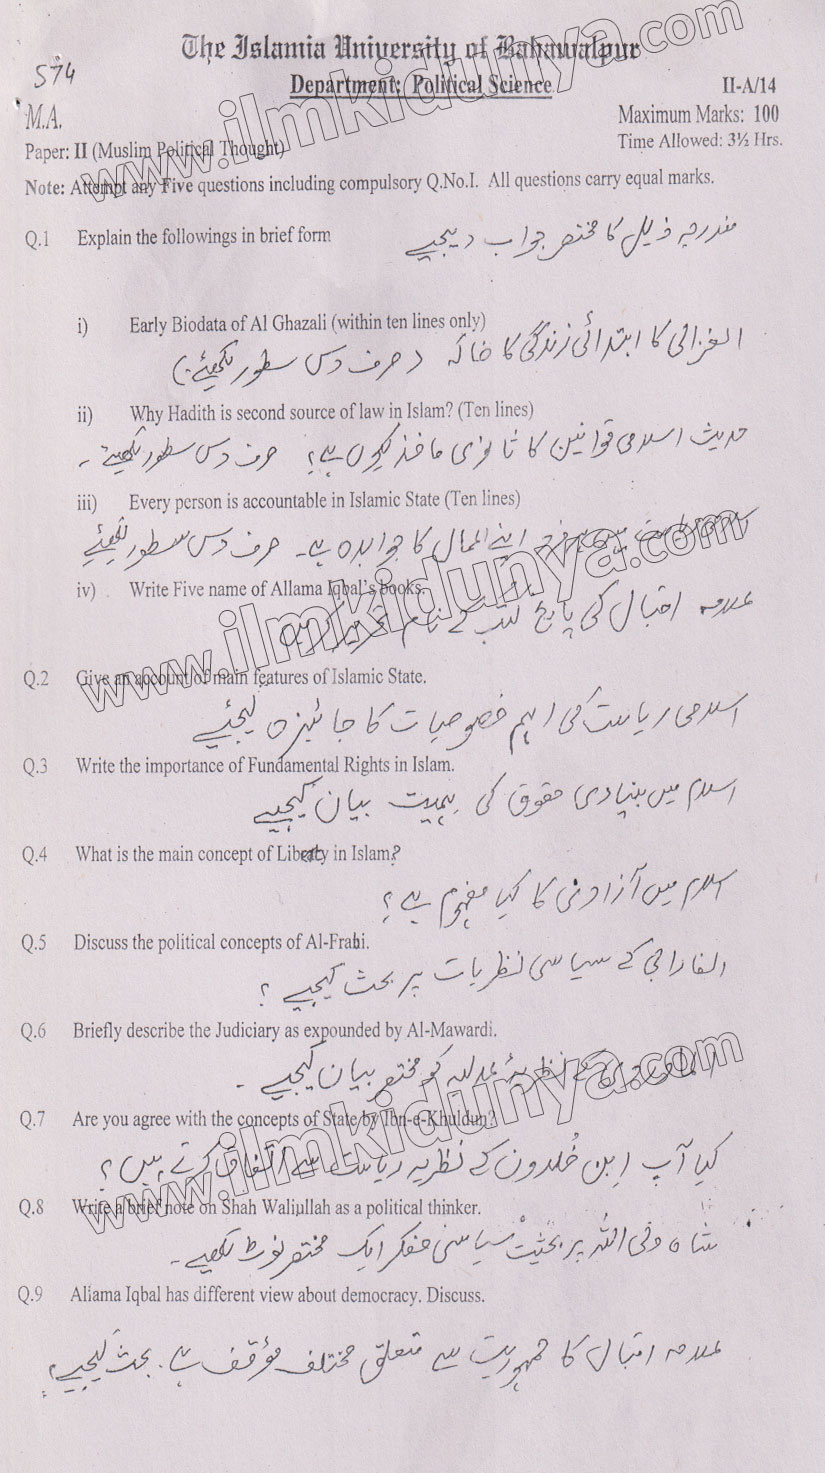 The Islamia University of Bahawalpur
S74
Department: Political Science
II-A/14
M.A.
Maximum Marks: 100
Paper: II (Muslim Political Thought)
Time Allowed: 3½ Hrs.
Note: Attempt any Five questions including compulsory Q.No.I. All questions carry equal marks.
Q.1 Explain the followings in brief form
مندرجہ ذیل کا مختصر جواب دیجیے
i) Early Biodata of Al Ghazali (within ten lines only)
الغزالی کا ابتدائی زندگی کا خاکہ (صرف دس سطور لکھیئے)
ii) Why Hadith is second source of law in Islam? (Ten lines)
حدیث اسلامی قوانین کا ثانوی ماخذ کیوں ہے؟ صرف دس سطور لکھیئے۔
iii) Every person is accountable in Islamic State (Ten lines)
اسلامی ریاست میں ہر فرد اپنے اعمال کا جوابدہ ہے۔ صرف دس سطور لکھیئے
iv) Write Five name of Allama Iqbal's books.
علامہ اقبال کی پانچ کتب کے نام تحریر کریں
Q.2 Give an account of main features of Islamic State.
اسلامی ریاست کی اہم خصوصیات کا جائیزہ لیجئے
Q.3 Write the importance of Fundamental Rights in Islam.
اسلام میں بنیادی حقوق کی اہمیت بیان کیجیے
Q.4 What is the main concept of Liberty in Islam?
اسلام میں آزادی کا کیا مفہوم ہے؟
Q.5 Discuss the political concepts of Al-Frabi.
الفارابی کے سیاسی نظریات پر بحث کیجیے؟
Q.6 Briefly describe the Judiciary as expounded by Al-Mawardi.
الماوردی کے نظریۂ عدلیہ کو مختصر بیان کیجیے۔
Q.7 Are you agree with the concepts of State by Ibn-e-Khuldun?
کیا آپ ابن خلدون کے نظریہ ریاست سے اتفاق کرتے ہیں؟
Q.8 Write a brief note on Shah Waliullah as a political thinker.
شاہ ولی اللہ پر بحثیت سیاسی مفکر ایک مختصر نوٹ لکھیے۔
Q.9 Allama Iqbal has different view about democracy. Discuss.
علامہ اقبال کا جمہوریت سے متعلق مختلف مؤقف ہے۔ بحث کیجیے؟
www.ilmkidunya.com
www.ilmkidunya.com
www.ilmkidunya.com